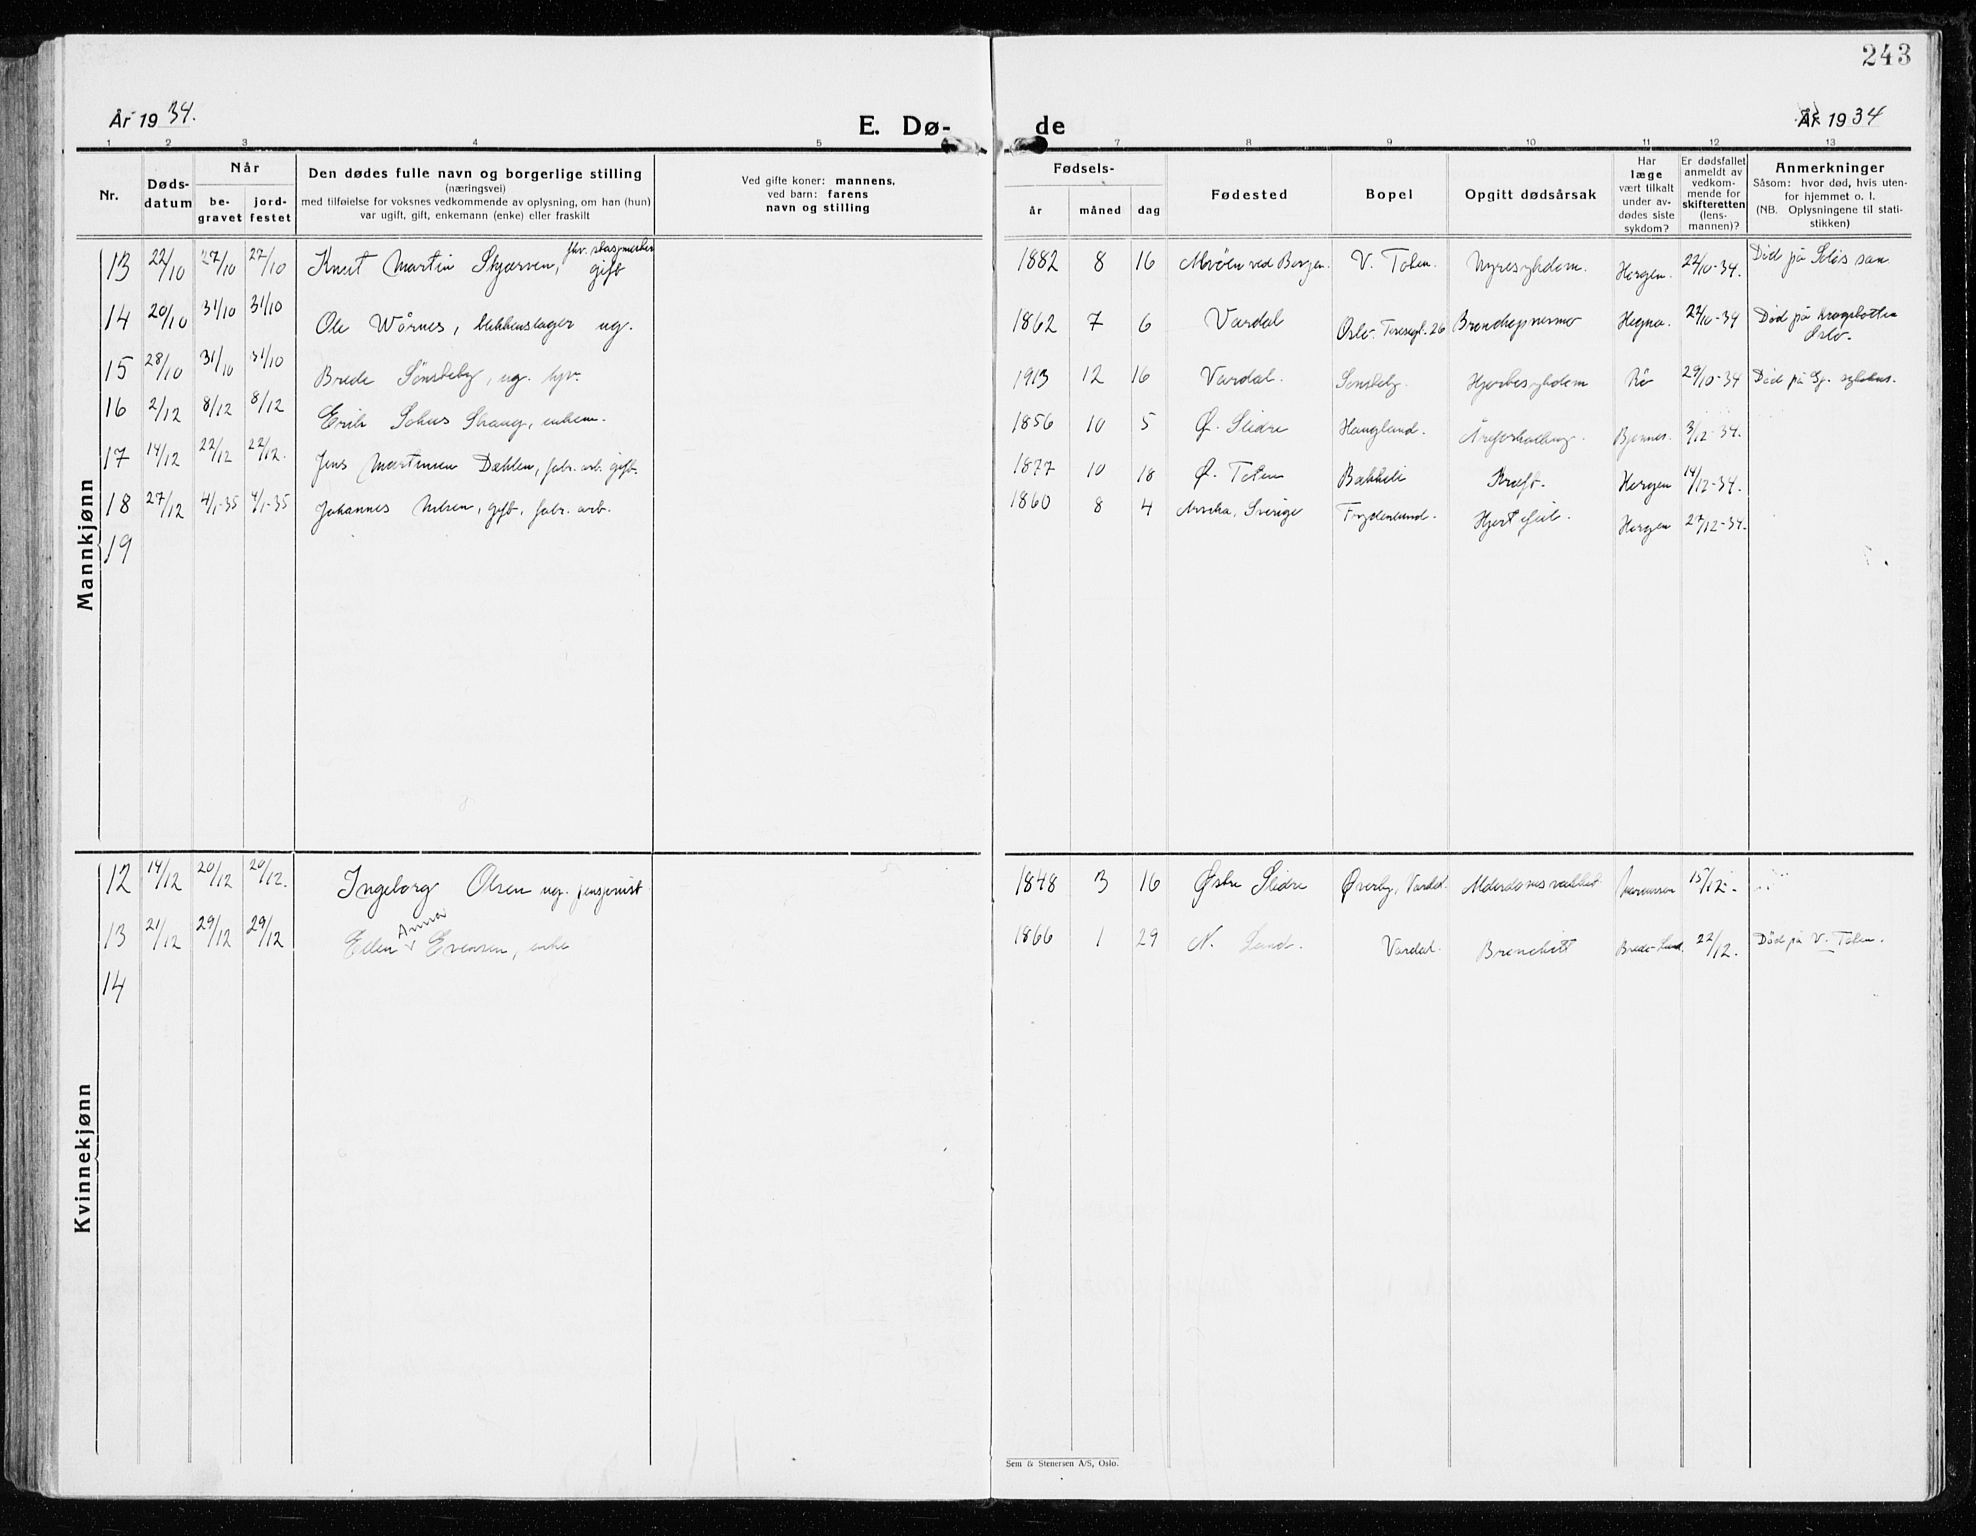 243
År 1934.
E. Dø-
de
År 1934
1 2 3 4 5 7 8 9 10 11 12 13
Nr.
Døds-
datum
Når
be-
gravet
jord-
festet
Den dødes fulle navn og borgerlige stilling
(næringsvei)
med tilføielse for voksnes vedkommende av oplysning, om han (hun)
var ugift, gift, enkemann (enke) eller fraskilt
Ved gifte koner: mannens,
ved barn: farens
navn og stilling
Fødsels-
år måned dag
Fødested
Bopel
Opgitt dødsårsak
Har
læge
vært tilkalt
under av-
dødes siste
sykdom?
Er dødsfallet
anmeldt av
vedkom-
mende for
skifteretten
(lens-
mannen)?
Anmerkninger
Såsom: hvor død, hvis uten-
for hjemmet o. l.
(NB. Oplysningene til stati-
stikken)
Mannkjønn
13 22/10 27/10 27/10 Knut Martin Skjærven, gift 1882 8 16 ved Borgen. V. Toten. Nyresykdom. Hergen. 22/10-34. Død på san
14 20/10 31/10 31/10 Ole Wårnes, blikkenslager ug. 1862 7 6 Vardal Oslo. Teresegt. 26 Hegna. 22/10-34 Død på Krogstøtten
Oslo.
15 28/10 31/10 31/10 Brede Sønsteby, ug. 1913 12 16 Vardal. Sønsteby. Hjertesykdom Rø 29/10-34 Død på Gj. sykehus.
16 2/12 8/12 8/12 Erik Skaug, enkem. 1856 10 5 Ø. Slidre Haugland. Åreforkalkning. 3/12-34.
17 14/12 22/12 22/12. Jens Martinsen Dæhlen, fabr. arb. gift. 1877 10 18 Ø. Toten Bækkeli Kreft. Hergen 14/12-34.
18 27/12 4/1-35 4/1-35 Johannes Nilsen, gift, fabr. arb. 1860 8 4 Arvika, Sverige Frydenlund. Hjertefeil. Hergen 27/12-34.
19
Kvinnekjønn
12 14/12 20/12 20/12. Ingeborg Olsen ug. pensjonist 1848 3 16 Østre Slidre Øverby, Vardal. Alderdomssvakhet 15/12-
13 21/12 29/12 29/12 Ellen Anna Evensen, enke 1866 1 29 N. Land. Vardal. Bronchitt Brede-Lund 22/12. Død på V. Toten.
14
Sem & Stenersen A/S, Oslo.